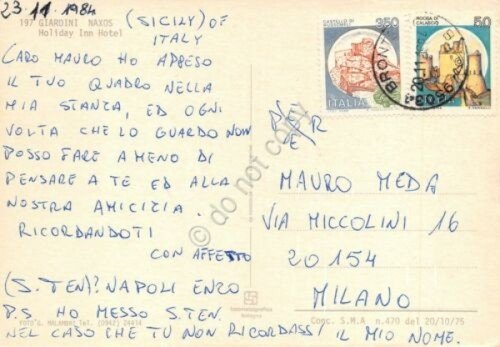 23-11-1984
197 GIARDINI NAXOS
Holiday Inn Hotel
(SICILY) OF
ITALY
CARO MAURO HO APPESO
IL TUO QUADRO NELLA
MIA STANZA, ED OGNI
VOLTA CHE LO GUARDO NON
POSSO FARE A MENO DI
PENSARE A TE ED ALLA
NOSTRA AMICIZIA.
RICORDANDOTI
CON AFFETTO
(S.TEN)? NAPOLI ENZO
P.S HO MESSO S.TEN.
NEL CASO CHE TU NON RICORDASSI IL MIO NOME.
FOTO G. MALAMBRI, Tel. (0942) 24414
CASTELLO DI
350
ITALIA
ROCCA DI
CALASCIO
50
BRON
MAURO MEDA
VIA MICCOLINI 16
20154
MILANO
Conc. S.M.A. n.470 del 20/10/75
Bologna
do not copy